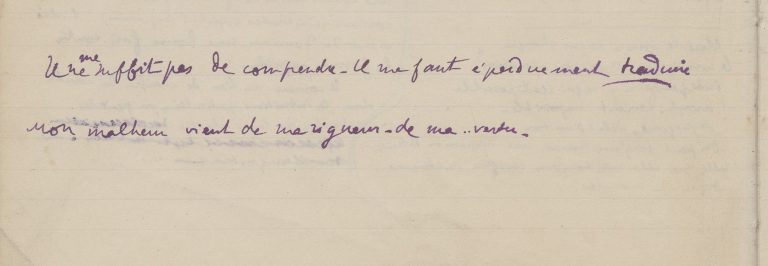 Il ne me suffit pas de comprendre - Il me faut éperdument traduire
Mon malheur vient de ma rigueur - de ma .. vertu -